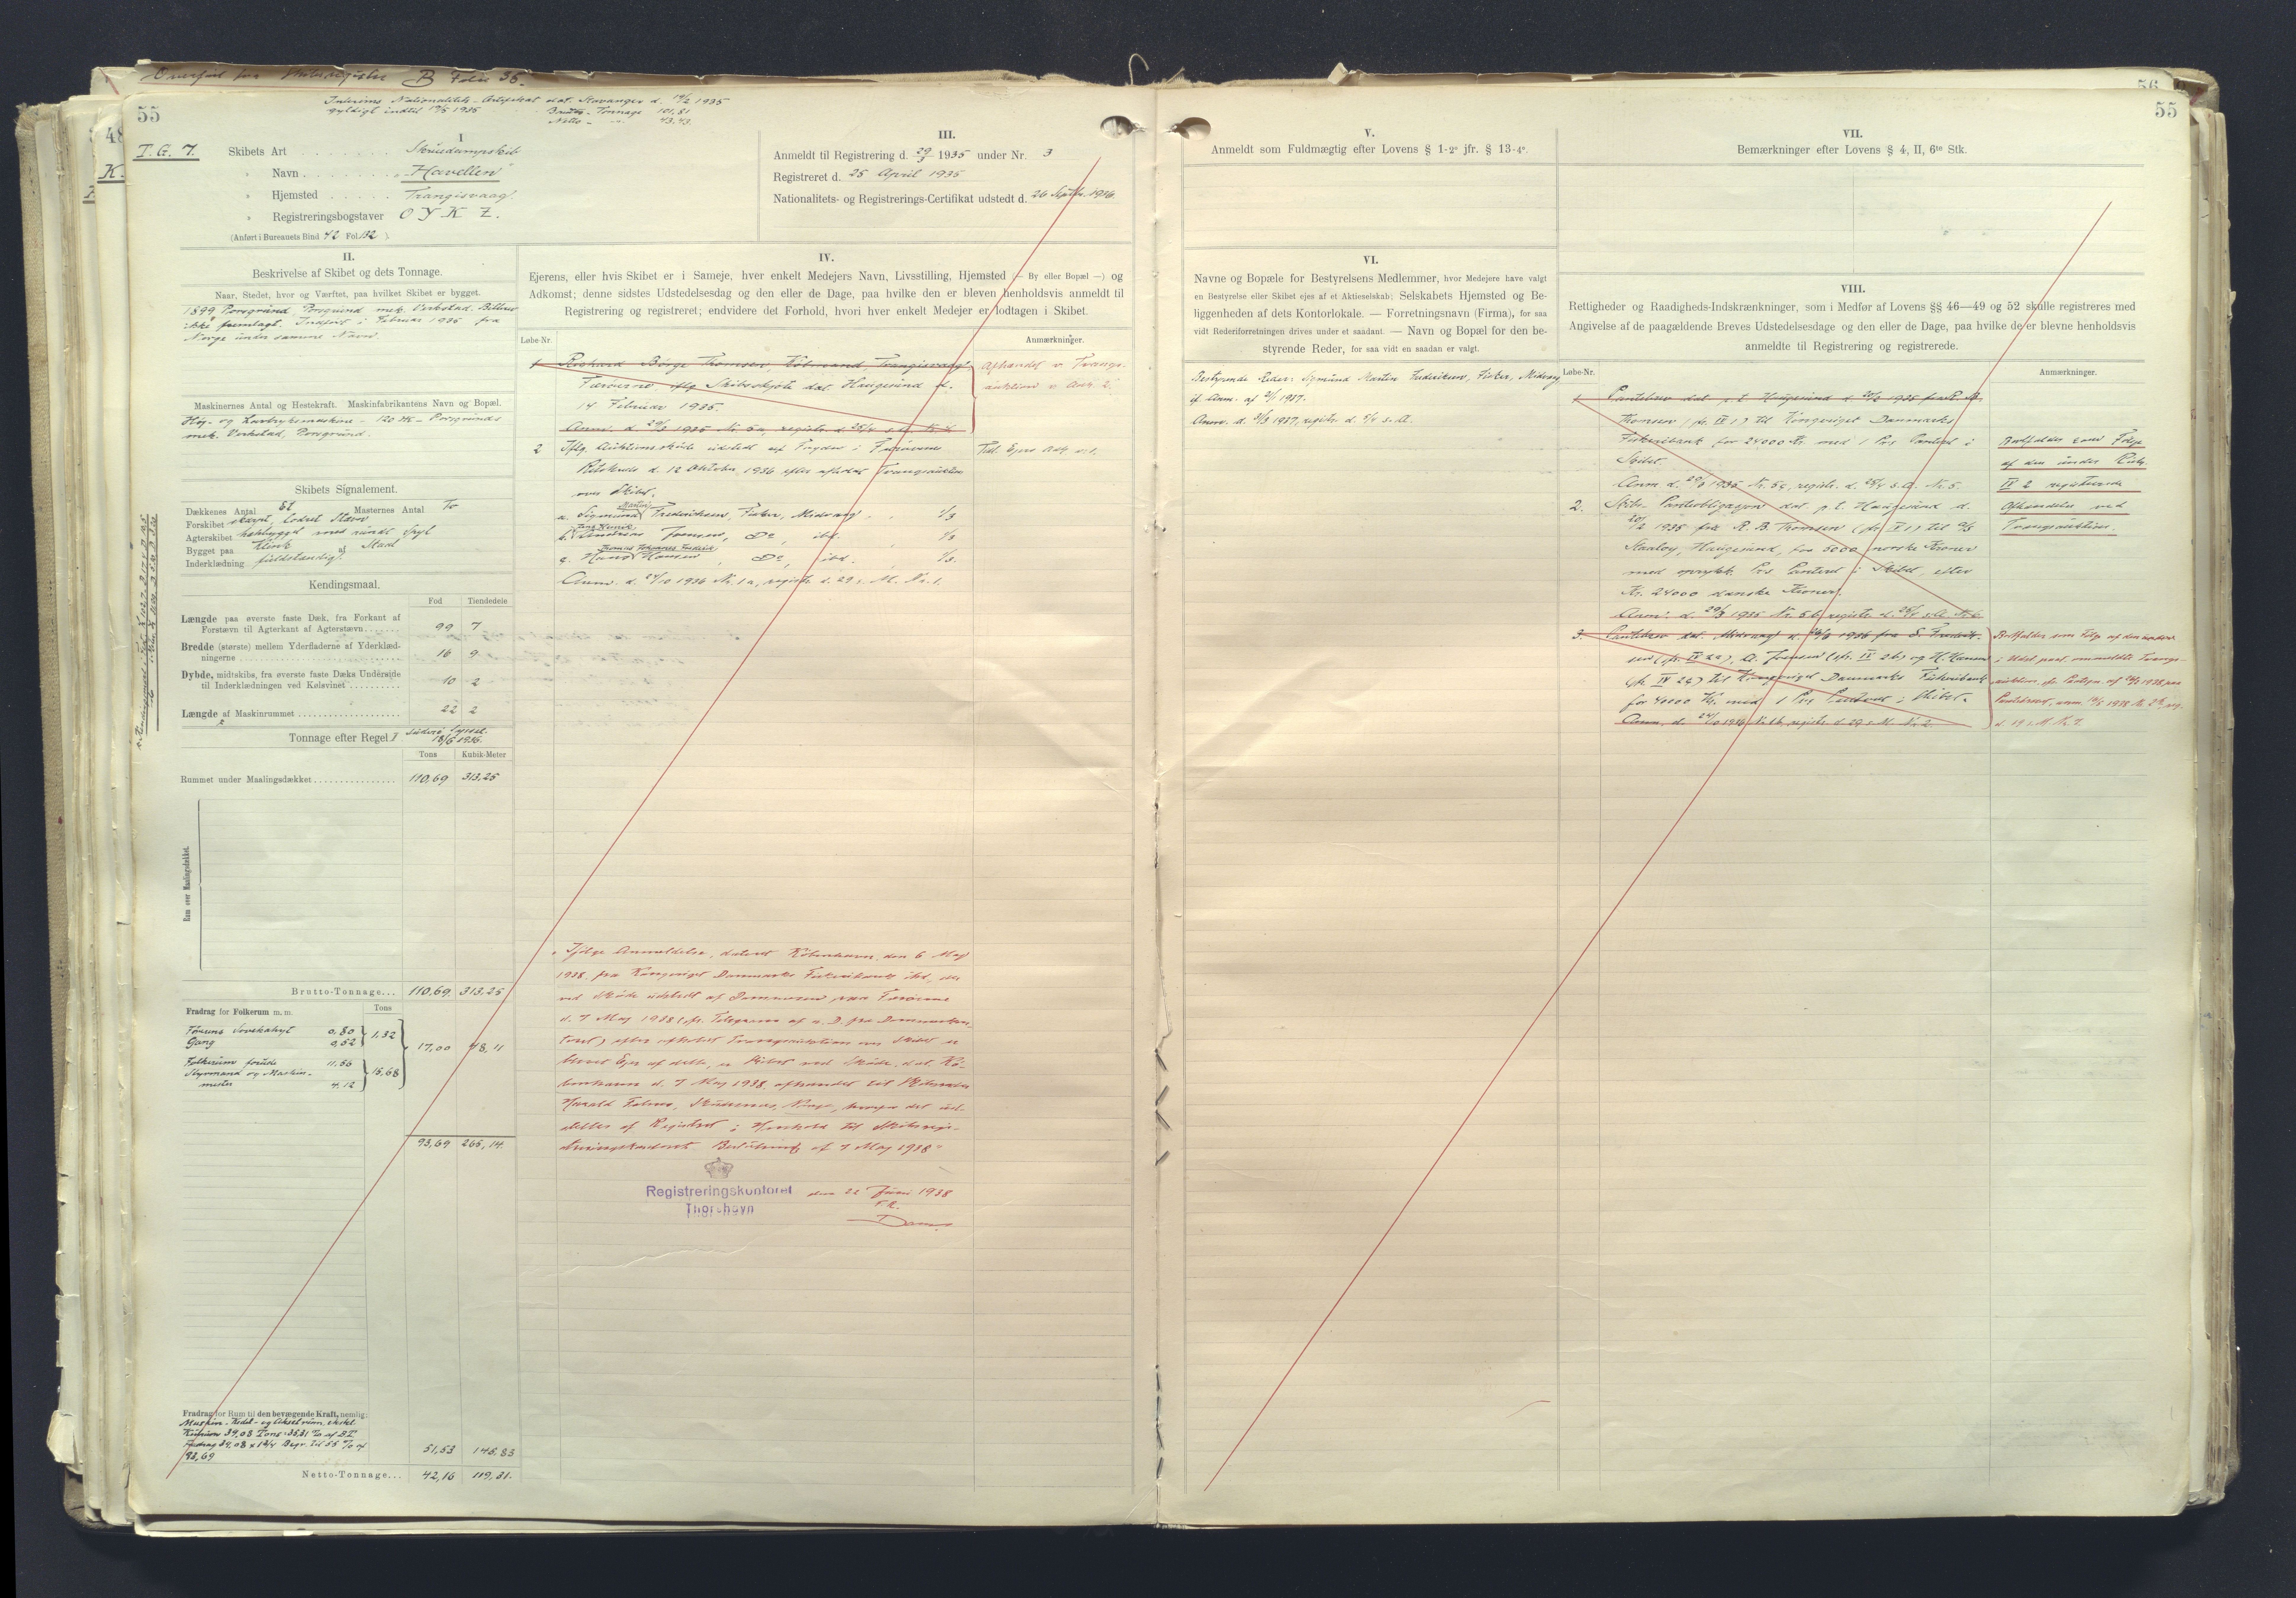 Overført fra Skibsregister B Folio 36.
55
Interims Nationalitets-Certifikat dat. Stavanger d. 19/2 1935
gyldigt indtil 19/5 1935
Brutto-Tonnage 101,81
Netto - " - 43,43.
T.G. 7.
I
Skibets Art Skruedampskib
" Navn „Havellen"
" Hjemsted Trangisvaag.
" Registreringsbogstaver O Y K Z.
(Anført i Bureauets Bind 42 Fol. 132 ).
III.
Anmeldt til Registrering d. 29/3 1935 under Nr. 3
Registreret d. 25 April 1935
Nationalitets- og Registrerings-Certifikat udstedt d. 26 Septbr. 1936
II.
Beskrivelse af Skibet og dets Tonnage.
Naar, Stedet, hvor og Værftet, paa hvilket Skibet er bygget.
1899 Porsgrund, Porsgrund mek. Verksted. Bilbrev
ikke fremlagt. Indført i Februar 1935 fra
Norge under samme Navn.
Maskinernes Antal og Hestekraft. Maskinfabrikantens Navn og Bopæl.
Høj- og Lavtryksmaskine - 120 HK - Porsgrunds
mek. Verksted, Porsgrund.
Skibets Signalement.
Dækkenes Antal Et Masternes Antal To
Forskibet skarpt, lodret Stævn
Agterskibet halvbygget med rundt Spejl
Bygget paa Klink af Staal
Inderklædning fuldstændig.
Kendingsmaal.
Fod Tiendedele
Længde paa øverste faste Dæk, fra Forkant af
Forstævn til Agterkant af Agterstævn 99 7
Bredde (største) mellem Yderfladerne af Yderklæd-
ningerne 16 9
Dybde, midtskibs, fra øverste faste Dæks Underside
til Inderklædningen ved Kølsvinet 10 2
Længde af Maskinrummet 22 2
Tonnage efter Regel I Suderø Syssel 18/6 1936.
Tons Kubik-Meter
Rummet under Maalingsdækket 110,69 313,25
Rum over Maalingsdækket.
Brutto-Tonnage... 110,69 313,25
Fradrag for Folkerum m. m. Tons
Førerens Sovekahyt 0,80
Gang 0,52 } 1,32
17,00 48,11
Folkerum forude 11,56
Styrmand og Maskin-
mester 4,12 } 15,68
93,69 265,14.
Fradrag for Rum til den bevægende Kraft, nemlig:
Maskin- Kedel- og Akselrum, ekskl.
Kulrum 39,08 Tons = 35,31 % af B.T.
Fradrag 39,08 x 1 3/4 Begr. til 55 % af
93,69
51,53 145,83
Netto-Tonnage... 42,16 119,31.
IV.
Ejerens, eller hvis Skibet er i Sameje, hver enkelt Medejers Navn, Livsstilling, Hjemsted (— By eller Bopæl —) og
Adkomst; denne sidstes Udstedelsesdag og den eller de Dage, paa hvilke den er bleven henholdsvis anmeldt til
Registrering og registreret; endvidere det Forhold, hvori hver enkelt Medejer er lodtagen i Skibet.
Løbe-Nr. Anmærkninger.
1 Richard Børge Thomsen, Købmand, Trangisvaag,
Færøerne iflg. Skibsskjøte dat. Haugesund d.
14 Februar 1935.
Anm. d. 29/3 1935 Nr. 5a, registr. d. 25/4 s.A. Nr. 4.
Afhændet v. Tvangs-
auktion v. Adk. 2.
2 Iflg. Auktionsskøde udstedt af Fogden i Færøernes
Retskreds d. 12 Oktober 1936 efter afholdt Tvangsauktion
over Skibet.
a. Sigmund Martin Frederiksen, Fisker, Midvaag 1/3
b. Jens Henrik Andreas Joensen, Do, ibd. 1/3
c. Thomas Johannes Frederik Hans Hansen, Do, ibd. 1/3.
Anm. d. 24/10 1936 Nr. 1a, registr. d. 29 s. M. Nr. 1.
Tidl. Ejers Adk. v. 1.
Ifølge Anmeldelse, dateret København den 6 Maj
1938 fra Kongeriget Danmarks Fiskeribank ibd., der
ved Skøde udstedt af Dommeren paa Færøerne
d. 7 Maj 1938 (jfr. Telegram af s. D. fra Dommerkon-
toret) efter afholdt Tvangsauktion over Skibet er
blevet Ejer af dette, er Skibet ved Skøde, dat. Kø-
benhavn d. 7 Maj 1938 afhændet til Skibsreder
Harald Falnes, Skudenes, Norge, hvorfor det ud-
slettes af Registret i Henhold til Skibsregi-
streringskontorets Beslutning af 7 Maj 1938.
Registreringskontoret den 22 Juni 1938
Thorshavn F.R.
V.
Anmeldt som Fuldmægtig efter Lovens § 1-2° jfr. § 13-4°.
VI.
Navne og Bopæle for Bestyrelsens Medlemmer, hvor Medejere have valgt
en Bestyrelse eller Skibet ejes af et Aktieselskab; Selskabets Hjemsted og Be-
liggenheden af dets Kontorlokale. — Forretningsnavn (Firma), for saa
vidt Rederiforretningen drives under et saadant. — Navn og Bopæl for den be-
styrende Reder, for saa vidt en saadan er valgt.
Bestyrende Reder: Sigmund Martin Frederiksen, Fisker, Midvaag
if. Anm. af 2/1 1937.
Anm. d. 31/3 1937, registr. d. 5/4 s. A.
56
55
VII.
Bemærkninger efter Lovens § 4, II, 6te Stk.
VIII.
Rettigheder og Raadigheds-Indskrænkninger, som i Medfør af Lovens §§ 46—49 og 52 skulle registreres med
Angivelse af de paagældende Breves Udstedelsesdage og den eller de Dage, paa hvilke de er blevne henholdsvis
anmeldte til Registrering og registrerede.
Løbe-Nr. Anmærkninger.
1 Pantebrev dat. p.t. Haugesund d. 20/2 1935 fra R. B.
Thomsen (jfr. IV 1) til Kongeriget Danmarks
Fiskeribank for 24000 Kr. med 1 Pri. Panteret i
Skibet.
Anm. d. 29/3 1935 Nr. 5a, registr. d. 25/4 s.A. Nr. 5.
2. Skibs-Panteobligasjon dat. p.t. Haugesund d.
20/2 1935 fra R. B. Thomsen (jfr. IV 1) til
Staaloy, Haugesund, for 5000 norske Kroner
med oprykk. Pri. Panteret i Skibet, efter
Kr. 24000 danske Kroner.
Anm. d. 29/3 1935 Nr. 5b, registr. d. 25/4 s.A. Nr. 6
Bortfaldet som Følge
af den under Rubr.
IV 2 registrerede
Afhændelse ved
Tvangsauktion.
3. Pantebrev dat. Midvaag d. 24/8 1936 fra S. Frederik-
sen (jfr. IV 2a), A. Joensen (jfr. IV 2b) og H. Hansen
(jfr. IV 2c) til Kongeriget Danmarks Fiskeribank
for 40000 Kr. med 1 Pri. Panteret i Skibet.
Anm. d. 24/10 1936 Nr. 1b, registr. d. 29 s. M. Nr. 2.